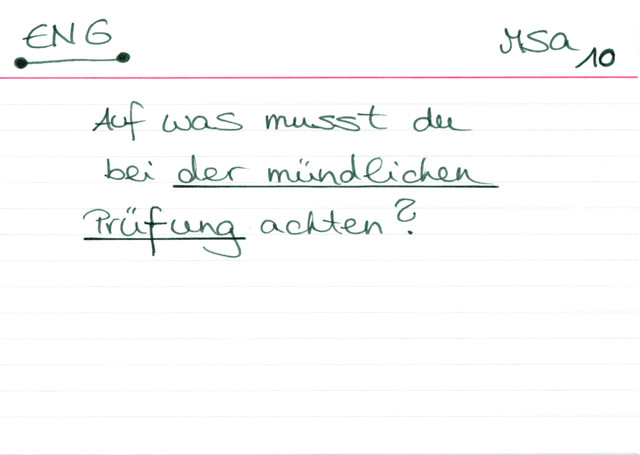 ENG
MSA 10
Auf was musst du
bei der mündlichen
Prüfung achten?